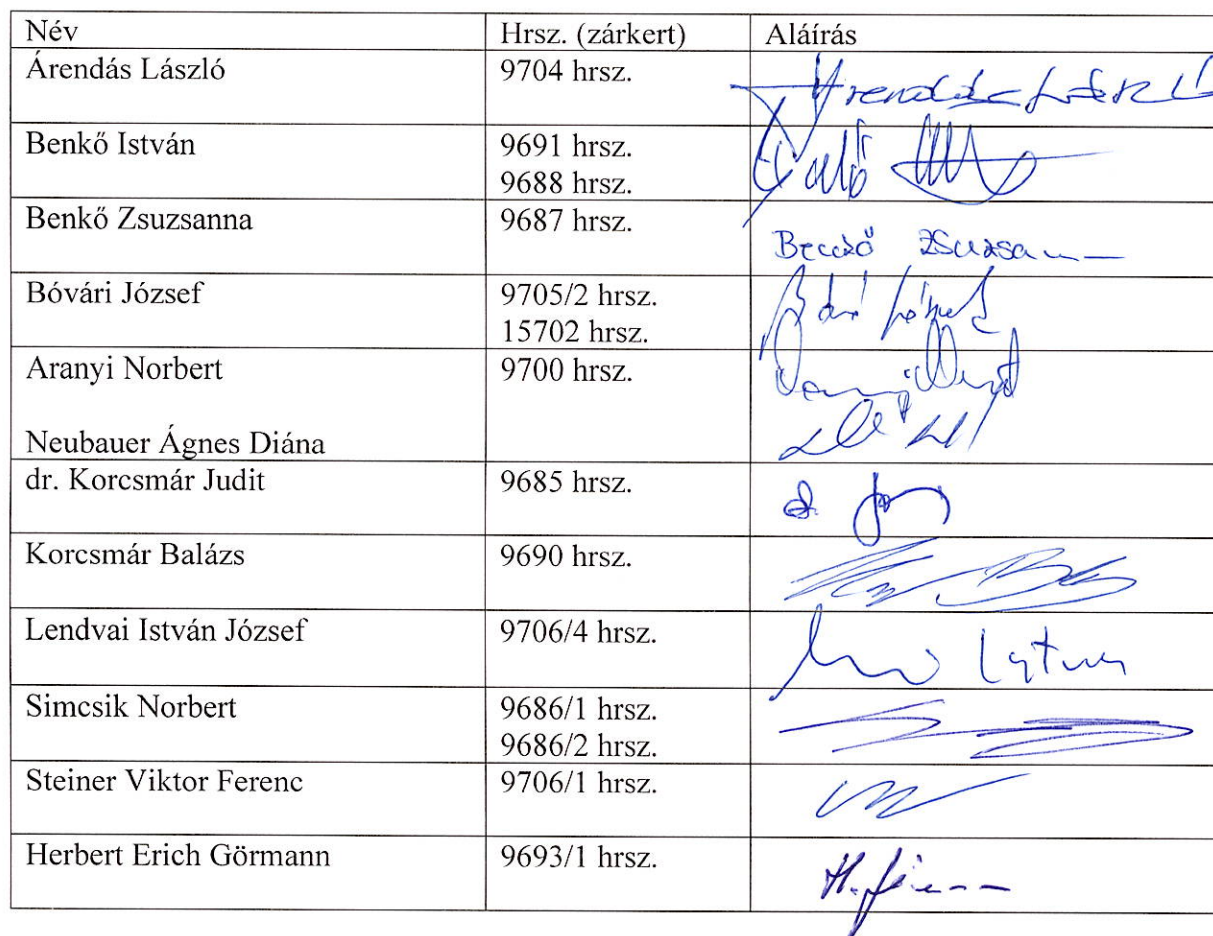 Név Hrsz. (zárkert) Aláírás
Árendás László 9704 hrsz. Árendás László
Benkő István 9691 hrsz.
9688 hrsz.
Benkő Zsuzsanna 9687 hrsz.
Benkő Zsuzsanna
Bóvári József 9705/2 hrsz.
15702 hrsz.
Aranyi Norbert 9700 hrsz.
Neubauer Ágnes Diána
dr. Korcsmár Judit 9685 hrsz.
Korcsmár Balázs 9690 hrsz.
Lendvai István József 9706/4 hrsz.
Simcsik Norbert 9686/1 hrsz.
9686/2 hrsz.
Steiner Viktor Ferenc 9706/1 hrsz.
Herbert Erich Görmann 9693/1 hrsz.